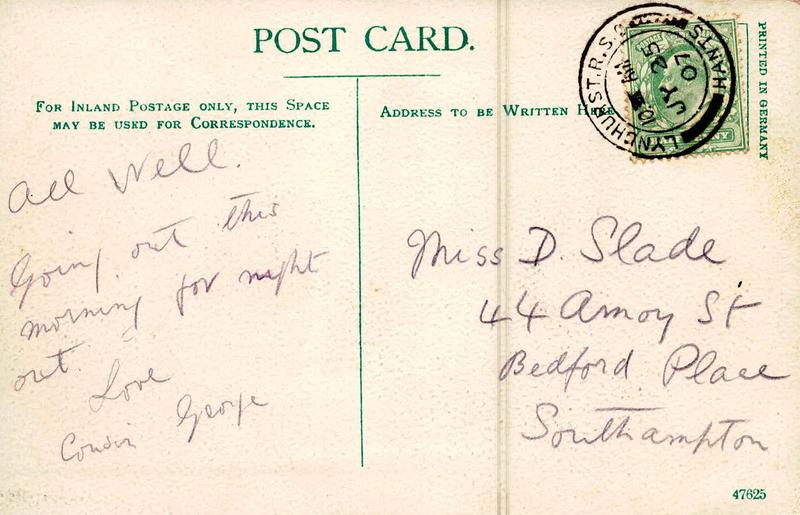 POST CARD.
FOR INLAND POSTAGE ONLY, THIS SPACE
MAY BE USED FOR CORRESPONDENCE.
ADDRESS TO BE WRITTEN HERE
LYNDHURST. R.S.O.
HANTS
JY 25
07
PRINTED IN GERMANY
All Well.
Going out this
morning for night
out.
Love
Cousin George
Miss D. Slade
44 Amoy St
Bedford Place
Southampton
47625